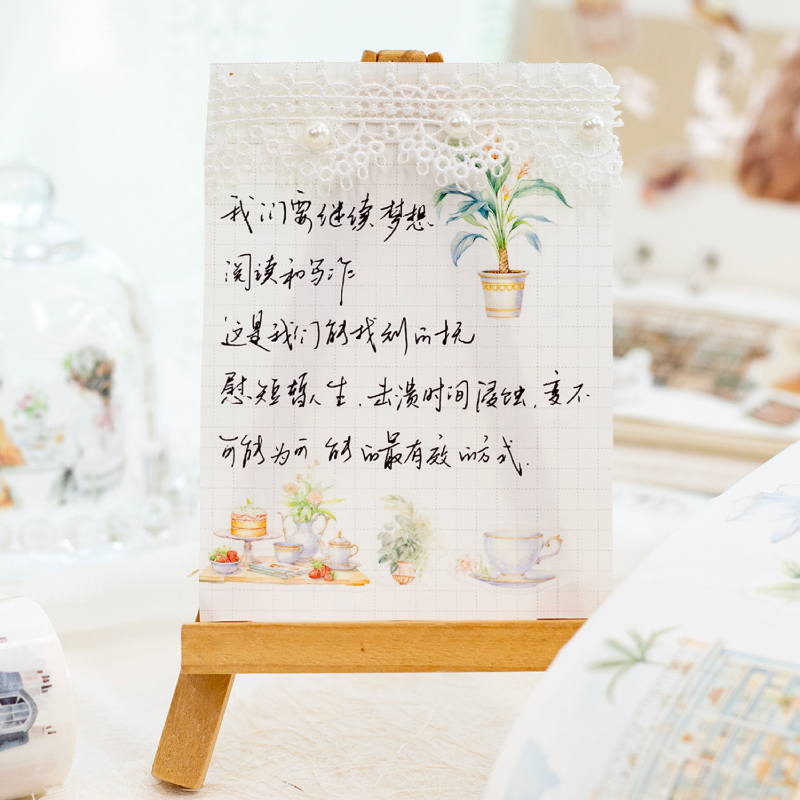 我们要继续梦想.
阅读和写作
这是我们能找到的抚
慰短暂人生.击溃时间浸蚀.变不
可能为可能的最有效的方式.